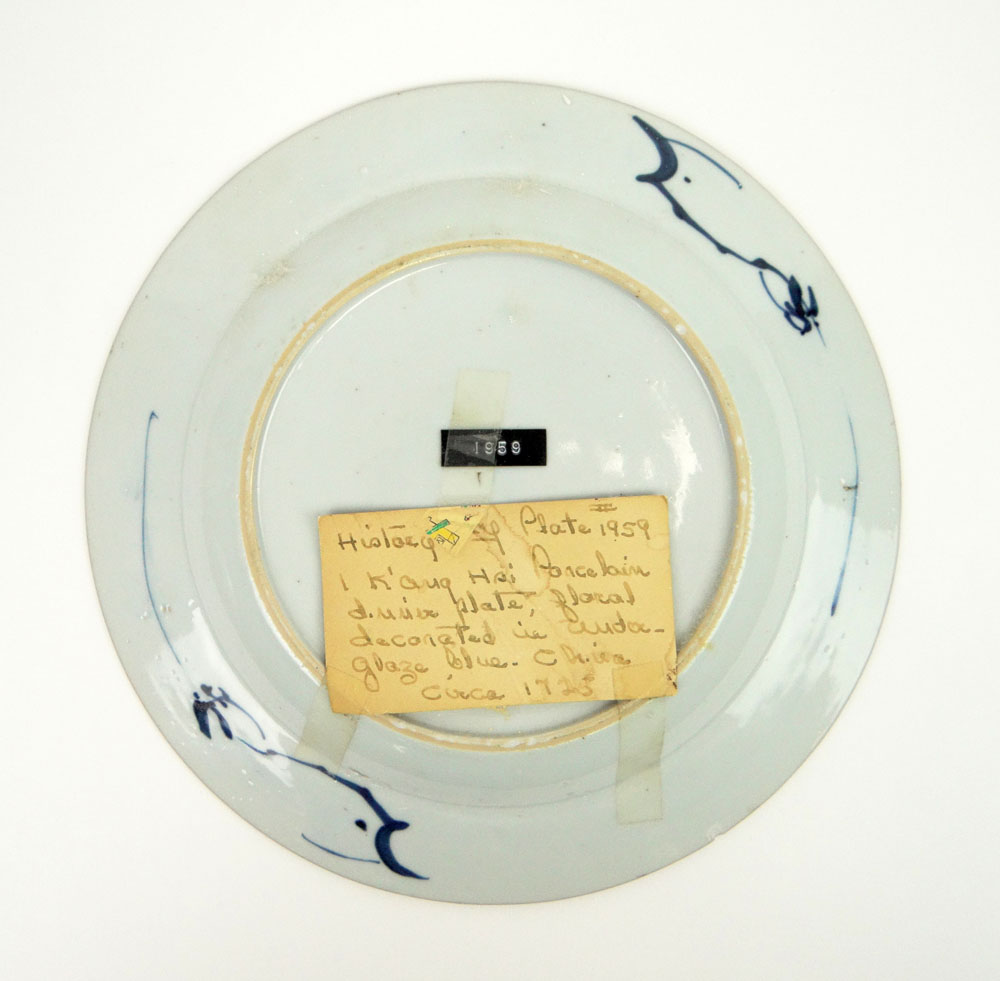 1959
History of Plate 1959
1 K'ang Hsi Porcelain
dinner plate, floral
decorated in under-
glaze blue - China
circa 1725